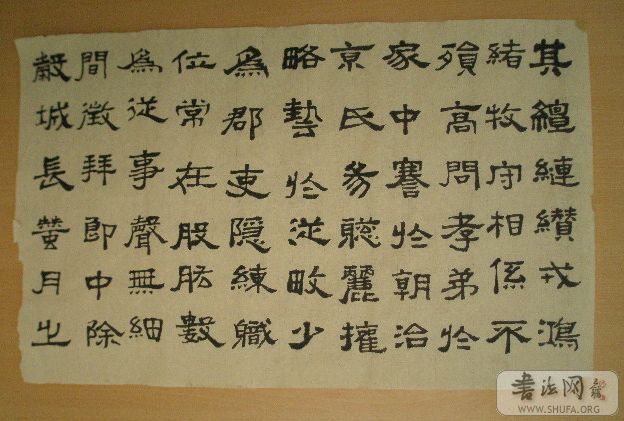 其繵縺纘戎鴻
緒牧守相係不
殞高問孝弟於
家中謇於朝治
京氏易聰麗權
略藝於從畋少
爲郡吏隱練職
位常在股肱數
爲從事聲無細
間徵拜郎中除
穀城長蠶月之
書法网
WWW.SHUFA.ORG